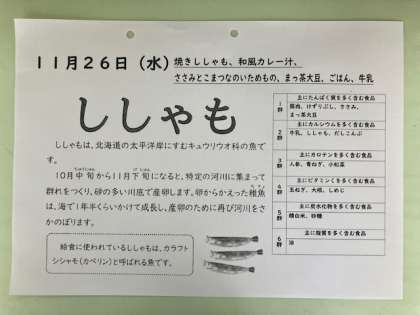 11月26日（水）
焼きししゃも、和風カレー汁、
ささみとこまつなのいためもの、まっ茶大豆、ごはん、牛乳
ししゃも
ししゃもは、北海道の太平洋岸にすむキュウリウオ科の魚で
す。
10月中旬から11月下旬になると、特定の河川に集まって
群れをつくり、砂の多い川底で産卵します。卵からかえった稚魚
は、海で1年半くらいかけて成長し、産卵のために再び河川をさ
かのぼります。
給食に使われているししゃもは、カラフト
シシャモ（カペリン）と呼ばれる魚です。
1群
主にたんぱく質を多く含む食品
豚肉、けずりぶし、ささみ、
まっ茶大豆
2群
主にカルシウムを多く含む食品
牛乳、ししゃも、だしこんぶ
3群
主にカロテンを多く含む食品
人参、青ねぎ、小松菜
4群
主にビタミンCを多く含む食品
玉ねぎ、大根、しめじ
5群
主に炭水化物を多く含む食品
精白米、砂糖
6群
主に脂質を多く含む食品
油